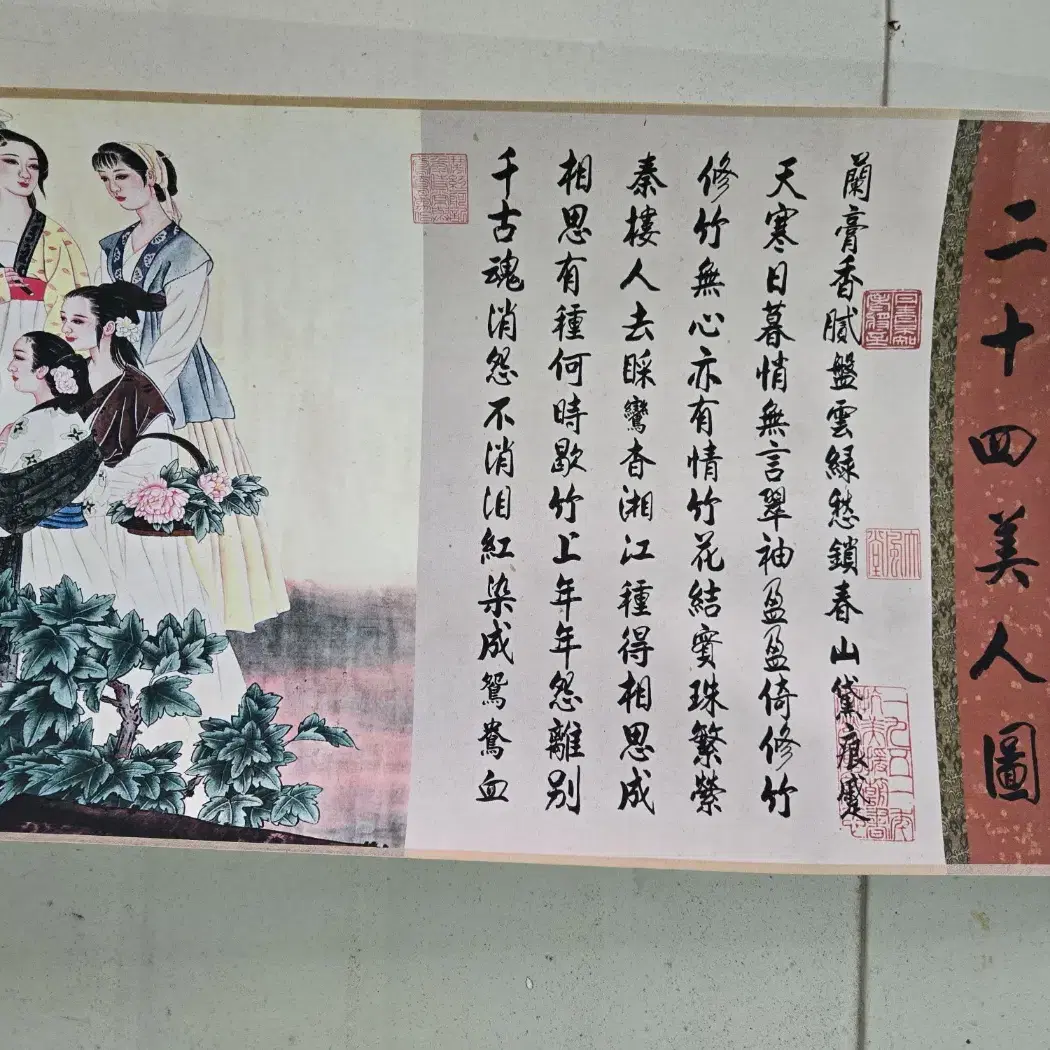 二十四美人圖
蘭膏香膩盤雲綠愁鎖春山黛痕蹙
天寒日暮悄無言翠袖盈盈倚修竹
修竹無心亦有情竹花結實珠繁縈
秦樓人去睬鸞杳湘江種得相思成
相思有種何時歇竹上年年怨離别
千古魂消怨不消泪紅染成鴛鴦血